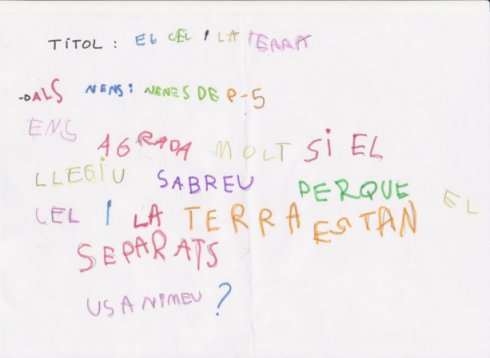 TÍTOL: EL CEL I LA TERRA
-DALS NENS i NENES DE P-5
ENS AGRADA MOLT Si EL
LLEGIU SABREU PERQUE EL
CEL I LA TERRA ESTAN
SEPARATS
US ANIMEU?